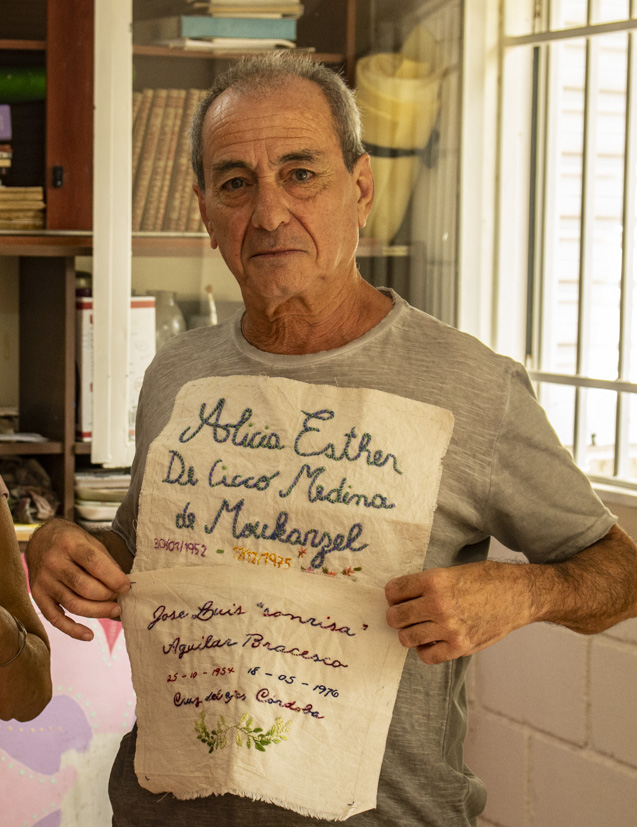 Alicia Esther
De Cicco Medina
de Moukarzel
30/01/1952 - 17/12/1975
Jose Luis "sonrisa"
Aguilar Bracesco
25-10-1954 18-05-1976
Cruz del eje Córdoba